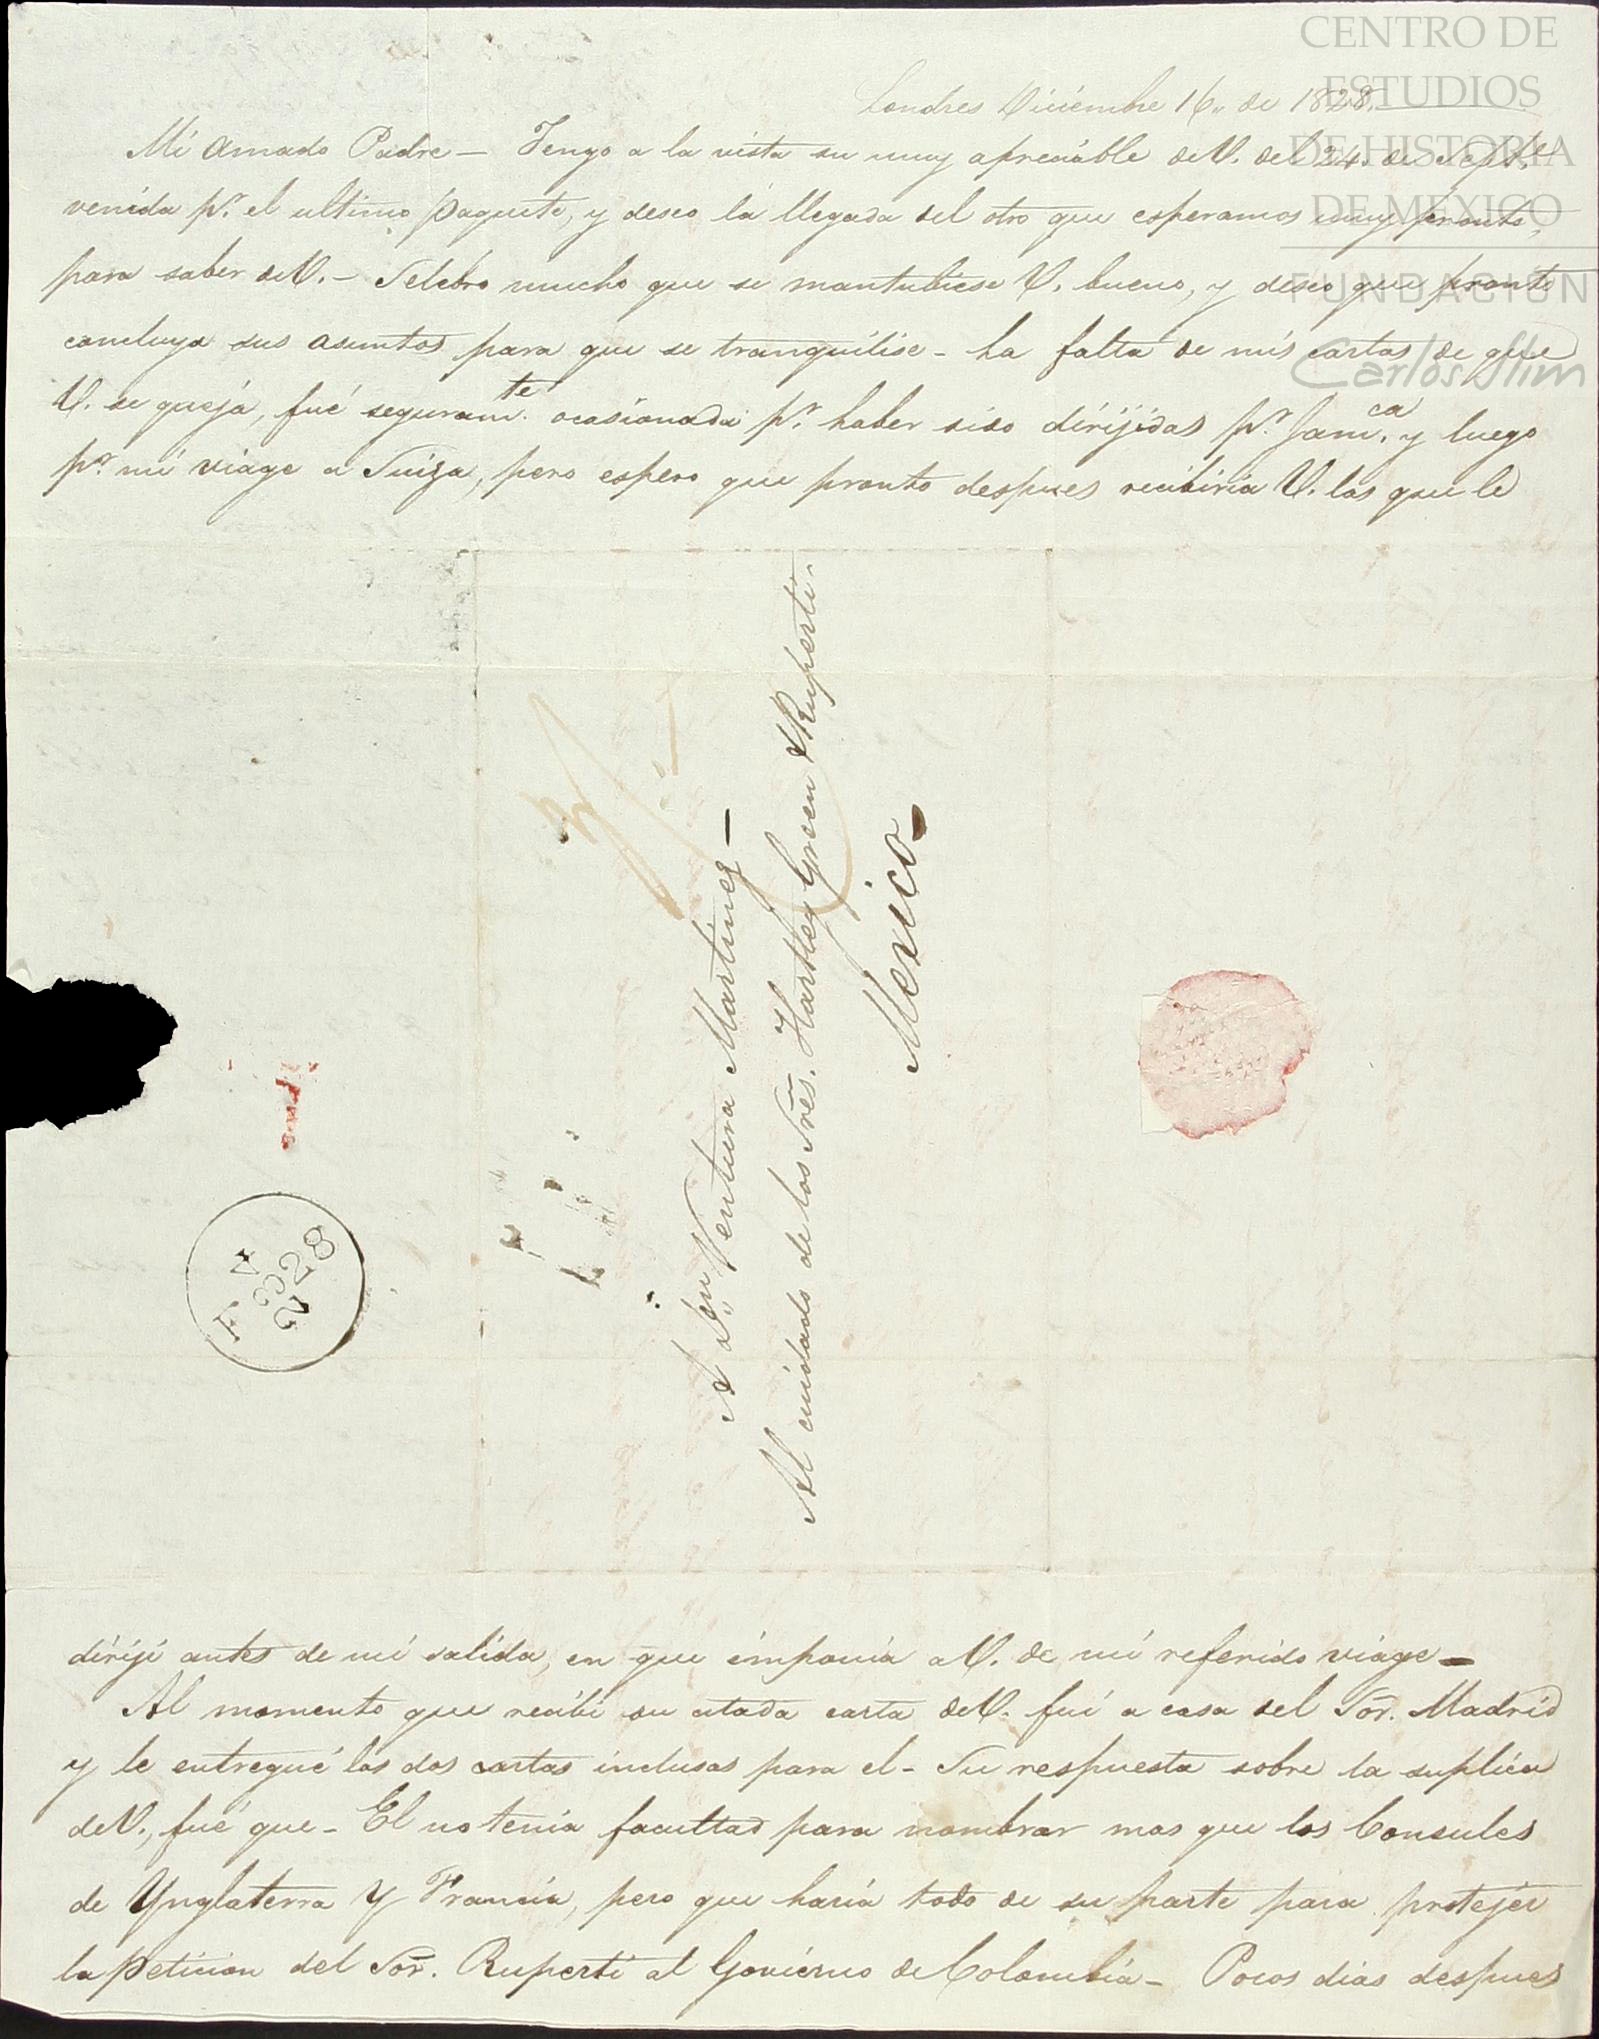 CENTRO DE
ESTUDIOS
DE HISTORIA
DE MEXICO
FUNDACIÓN
Carlos Slim
Londres Diciembre 16,, de 1828.
Mi amado Padre — Tengo a la vista su muy apreciable de V. del 24. de Sept.e
venida p.r el ultimo paquete, y deseo la llegada del otro que esperamos muy pronto,
para saber de V. – Selebro mucho que se mantubiese V. bueno, y deseo que pronto
concluya sus asuntos para que se tranquilise – La falta de mis cartas de que
V. se queja, fué seguram.te ocasionada p.r haber sido dirijidas p.r Jam.ca y luego
p.r mi viage a Suiza, pero espero que pronto despues recibiria V. las que le
A Dn Ventura Martinez —
Al cuidado de los Sres. Hartley Green & Ruperti.
Mexico —
F 28
28
diriji antes de mi salida, en que imponia a V. de mi referido viage —
Al momento que recibi su citada carta de V. fui a casa del Sor. Madrid
y le entregué las dos cartas inclusas para el – Su respuesta sobre la suplica
de V., fué que – El no tenia facultad para nombrar mas que los Consules
de Ynglaterra y Francia, pero que haria todo de su parte para protejer
la peticion del Sor. Ruperti al Govierno de Colombia – Pocos dias despues